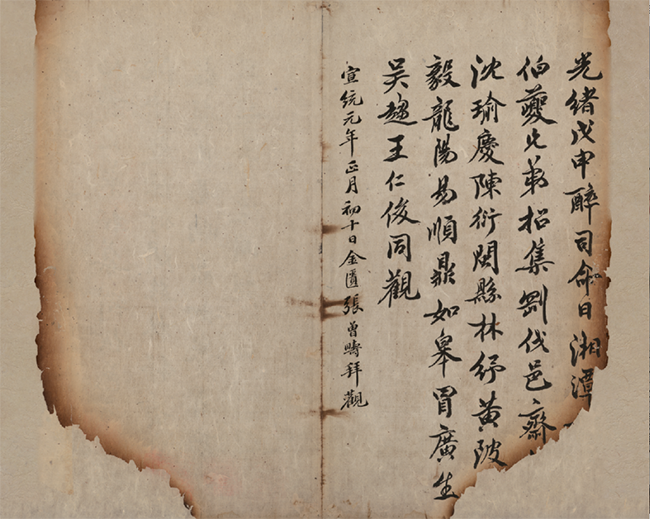 光緒戊申醉司命日湘潭
伯夔兄弟招集劉伐邑齋
沈瑜慶陳衍閩縣林紓黃陂
毅龍陽易順鼎如皋冒廣生
吳趨王仁俊同觀
宣統元年正月初十日金匱張曾疇拜觀